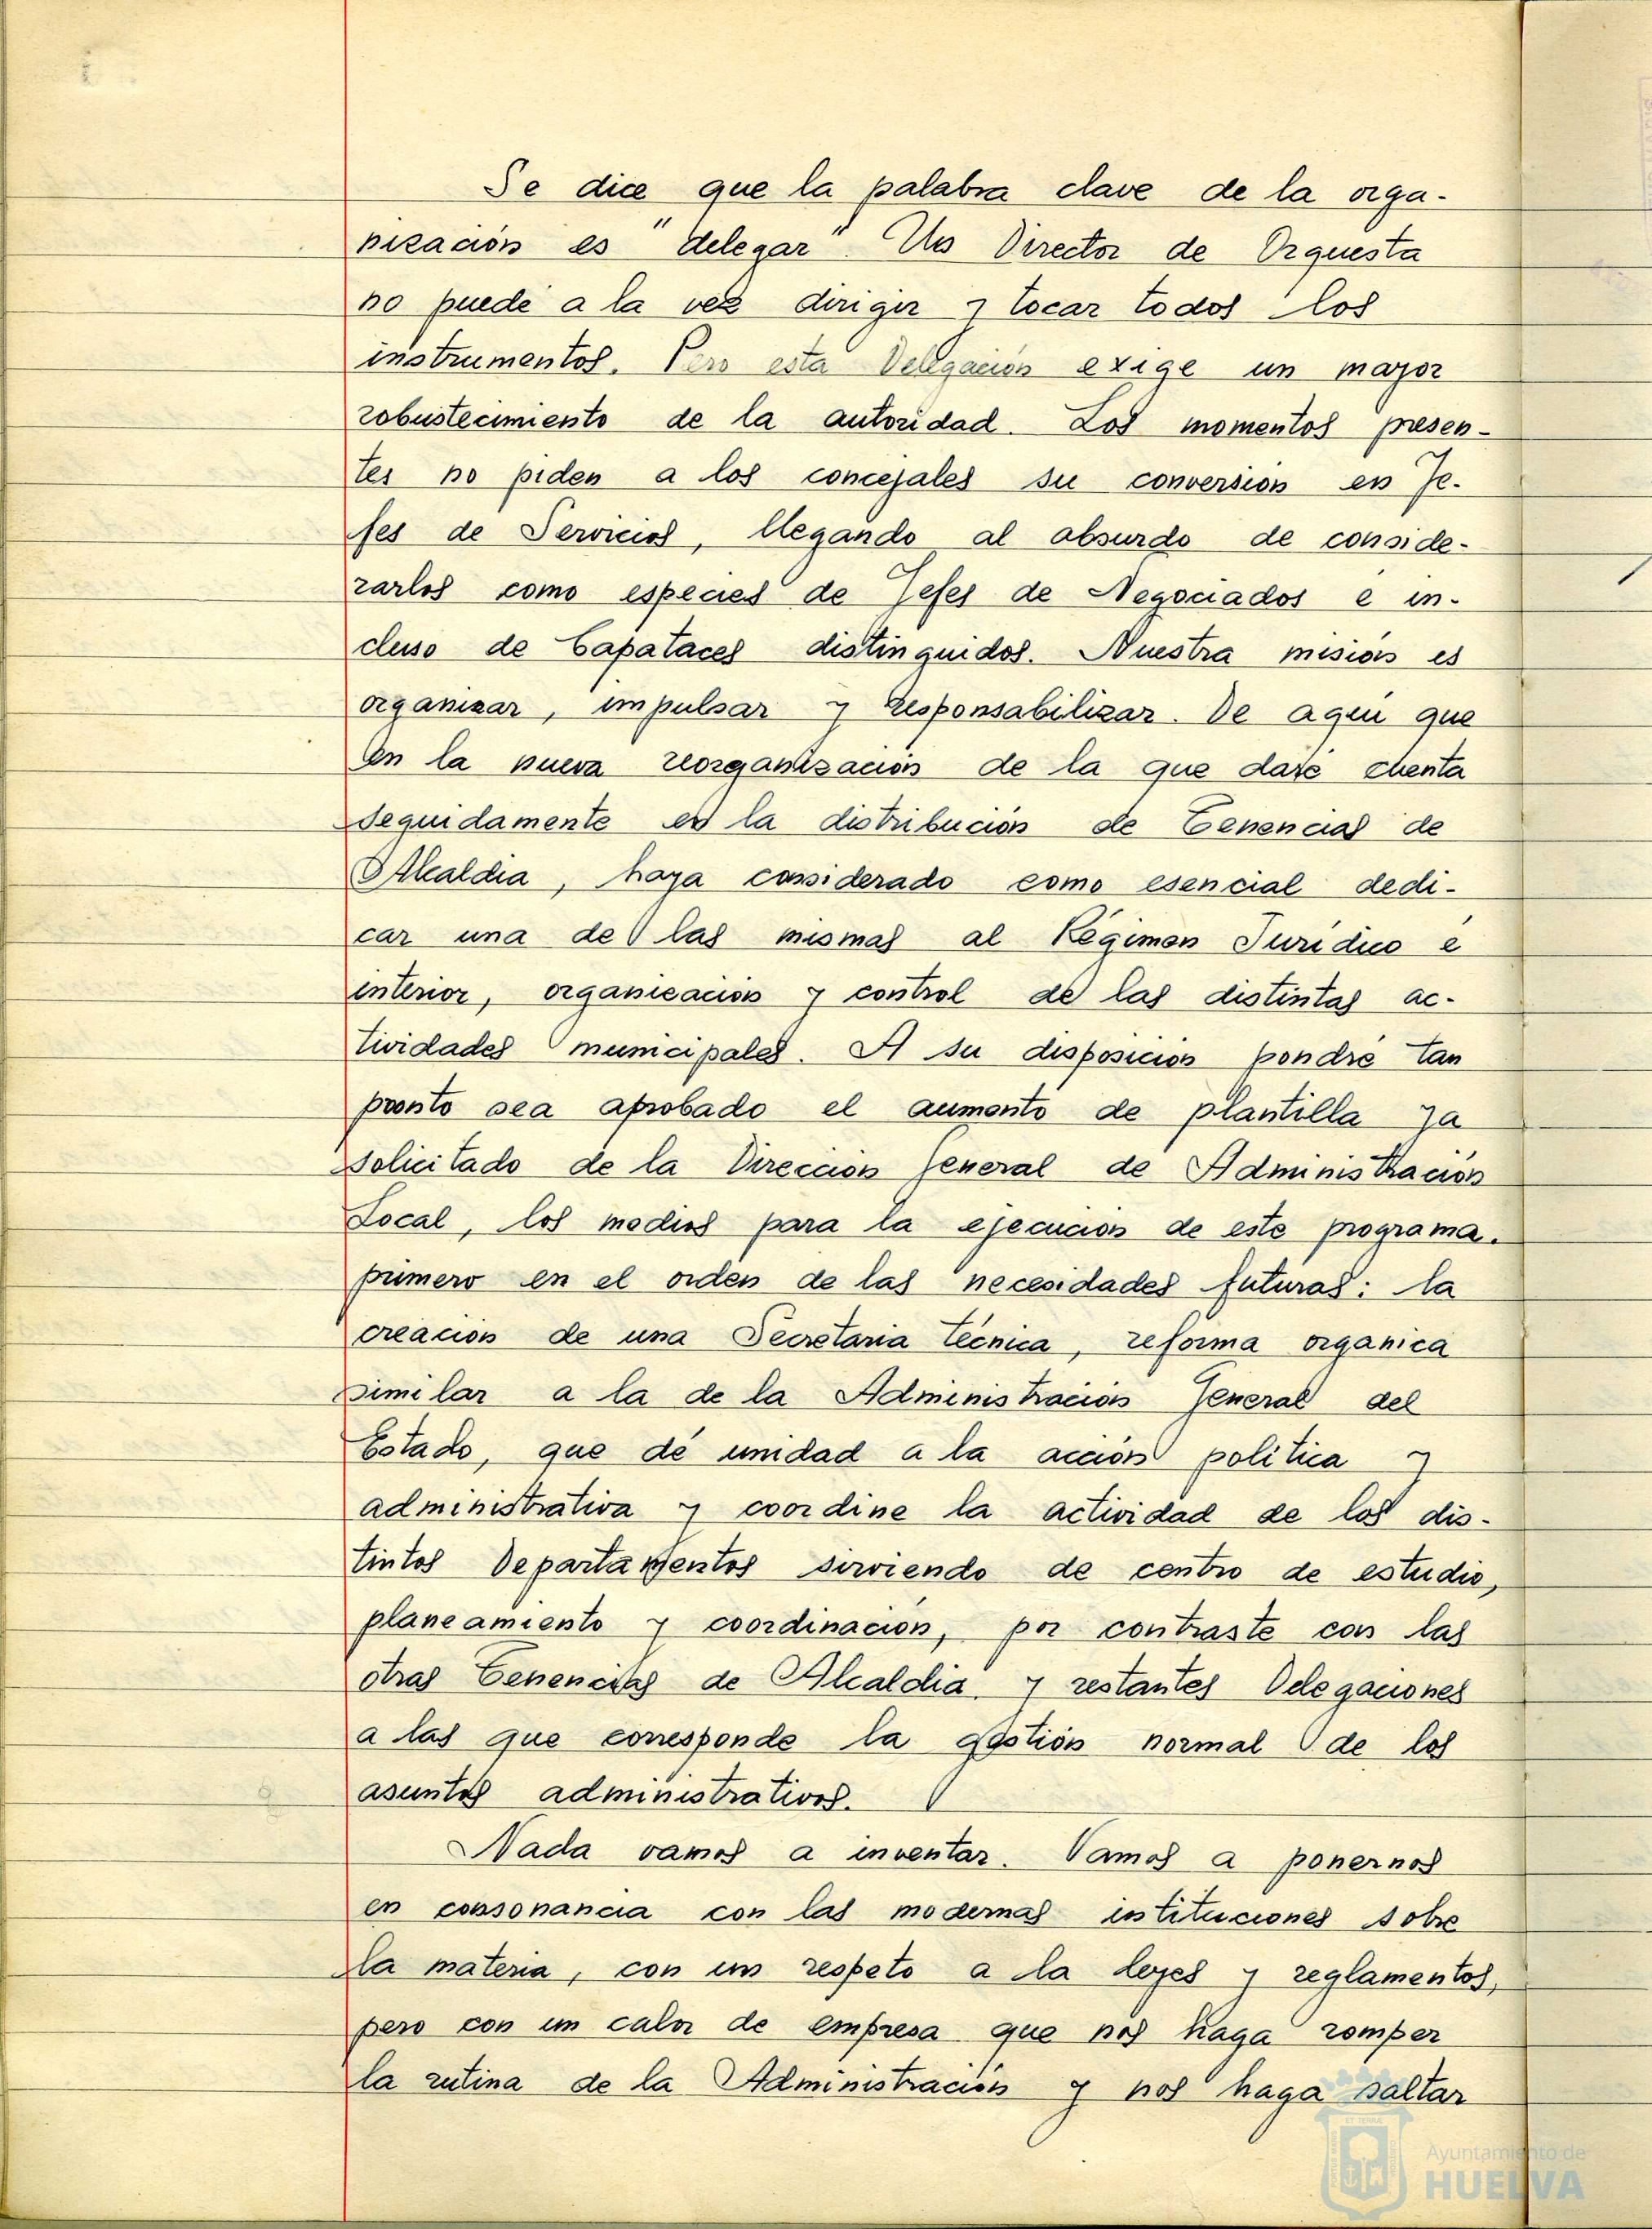 Se dice que la palabra clave de la orga-
nización es "delegar". Un Director de Orquesta
no puede a la vez dirigir y tocar todos los
instrumentos. Pero esta Delegación exige un mayor
robustecimiento de la autoridad. Los momentos presen-
tes no piden a los concejales su conversión en Je-
fes de Servicios, llegando al absurdo de conside-
rarlos como especies de Jefes de Negociados e in-
cluso de Capataces distinguidos. Nuestra misión es
organizar, impulsar y Responsabilizar. De aquí que
en la nueva reorganización de la que daré cuenta
seguidamente en la distribución de Tenencias de
Alcaldia, haya considerado como esencial dedi-
car una de las mismas al Régimen Juridico e
interior, organización y control de las distintas ac-
tividades municipales. A su disposición pondré tan
pronto sea aprobado el aumento de plantilla ya
solicitado de la Dirección General de Administración
Local, los medios para la ejecución de este programa.
primero en el orden de las necesidades futuras: la
creación de una Secretaria Técnica, reforma organica
similar a la de la Administración General del
Estado, que dé unidad a la acción politica y
administrativa y coordine la actividad de los dis-
tintos Departamentos sirviendo de centro de estudio,
planeamiento y coordinación, por contraste con las
otras Tenencias de Alcaldia, y restantes Delegaciones
a las que corresponde la gestión normal de los
asuntos administrativos.
Nada vamos a inventar. Vamos a ponernos
en consonancia con las modernas instituciones sobre
la materia, con un respeto a la leyes y reglamentos,
pero con un calor de empresa que nos haga romper
la rutina de la Administración y nos haga saltar
Ayuntamiento de
HUELVA